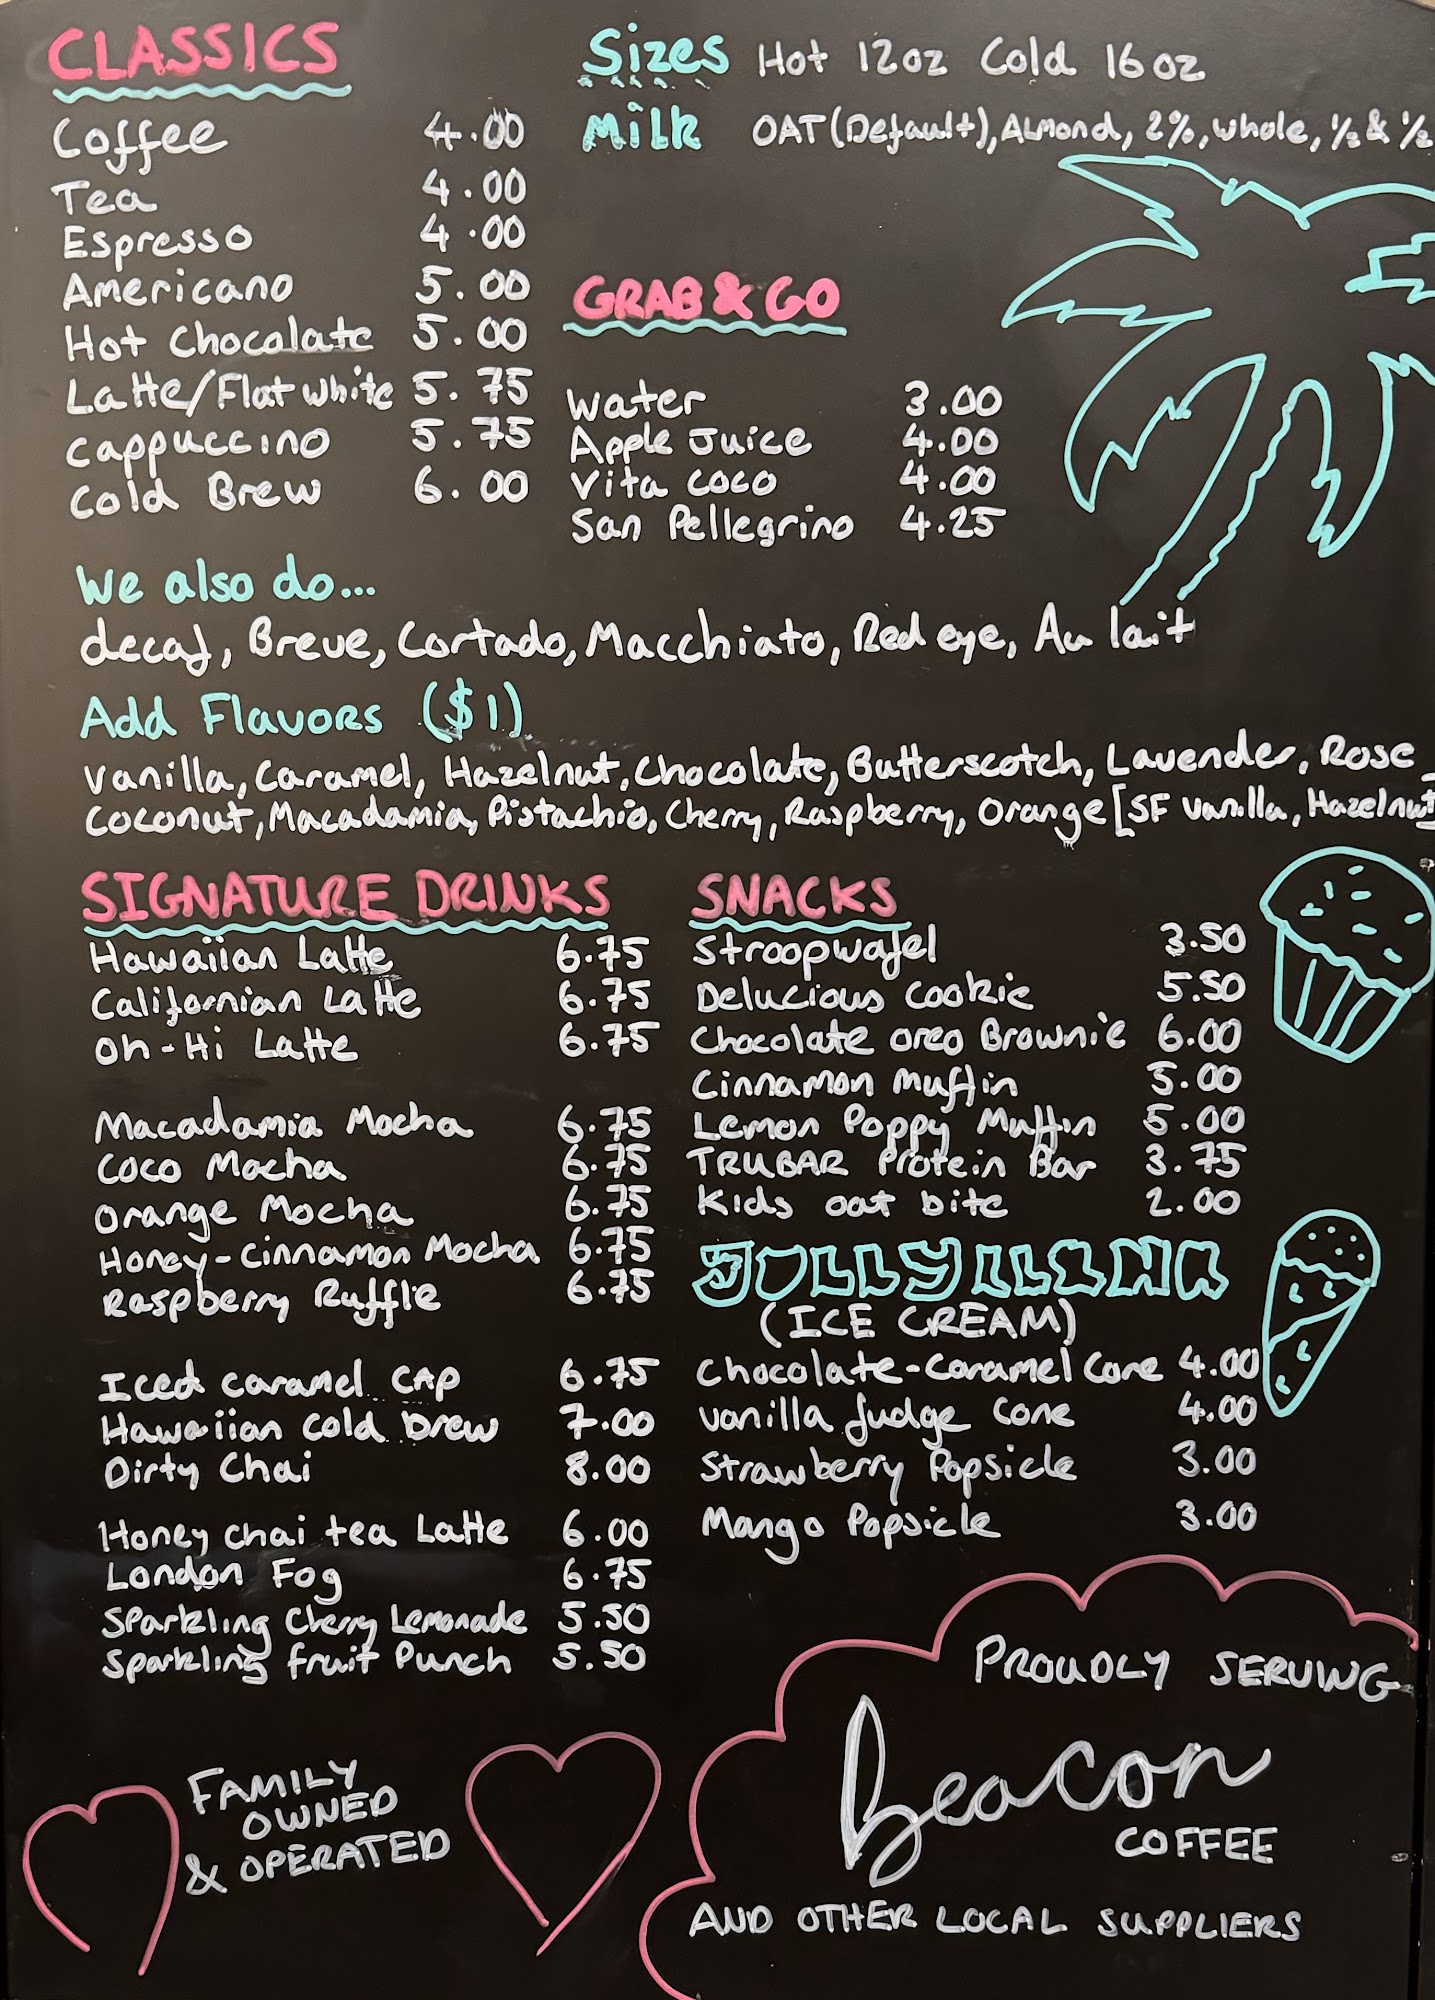 CLASSICS
Coffee 4.00
Tea 4.00
Espresso 4.00
Americano 5.00
Hot Chocolate 5.00
Latte/Flat white 5.75
Cappuccino 5.75
Cold Brew 6.00
Sizes Hot 12oz Cold 16oz
Milk OAT (Default), Almond, 2%, whole, ½ & ½
GRAB & GO
Water 3.00
Apple Juice 4.00
Vita coco 4.00
San Pellegrino 4.25
We also do...
decaf, Breve, Cortado, Macchiato, Red eye, Au lait
Add Flavors ($1)
Vanilla, Caramel, Hazelnut, Chocolate, Butterscotch, Lavender, Rose
Coconut, Macadamia, Pistachio, Cherry, Raspberry, Orange [SF Vanilla, Hazelnut]
SIGNATURE DRINKS
Hawaiian Latte 6.75
Californian Latte 6.75
Oh-Hi Latte 6.75
Macadamia Mocha 6.75
Coco Mocha 6.75
Orange Mocha 6.75
Honey-Cinnamon Mocha 6.75
Raspberry Ruffle 6.75
Iced caramel CAP 6.75
Hawaiian Cold Brew 7.00
Dirty Chai 8.00
Honey chai tea Latte 6.00
London Fog 6.75
Sparkling Cherry Lemonade 5.50
Sparkling fruit Punch 5.50
SNACKS
Stroopwafel 3.50
Delucious Cookie 5.50
Chocolate oreo Brownie 6.00
Cinnamon muffin 5.00
Lemon Poppy Muffin 5.00
TRUBAR Protein Bar 3.75
Kids oat bite 2.00
JOLLY LLAMA
(ICE CREAM)
Chocolate-Caramel Cone 4.00
Vanilla fudge Cone 4.00
Strawberry Popsicle 3.00
Mango Popsicle 3.00
FAMILY
OWNED
& OPERATED
PROUDLY SERVING
Beacon
COFFEE
AND OTHER LOCAL SUPPLIERS